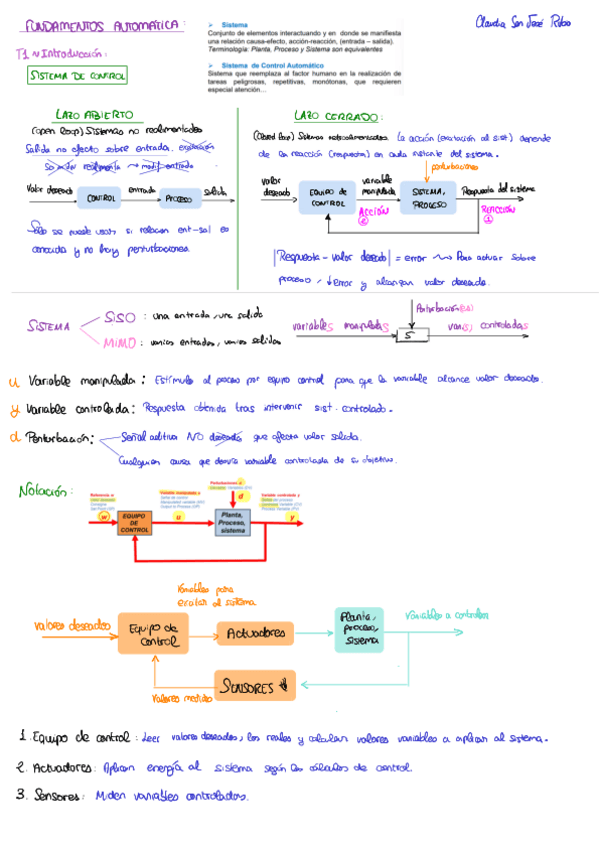 FUNDAMENTOS AUTOMÁTICA:
Claudia San José Ribo
T1 ~ Introducción:
SISTEMA DE CONTROL
➢ Sistema
Conjunto de elementos interactuando y en donde se manifiesta
una relación causa-efecto, acción-reacción, (entrada – salida).
Terminología: Planta, Proceso y Sistema son equivalentes
➢ Sistema de Control Automático
Sistema que reemplaza al factor humano en la realización de
tareas peligrosas, repetitivas, monótonas, que requieren
especial atención…
LAZO ABIERTO
(open loop) Sistemas no realimentados
Salida no efecto sobre entrada.
valor deseado
CONTROL
entrada
PROCESO
salida
Sólo se puede usar si relacion ent-sal es
conocida y no hay perturbaciones
LAZO CERRADO:
(Closed loop) Sistemas retroalimentados La acción (excitación al sist) depende
de la reacción (respuesta) en cada instante del sistema.
perturbaciones
valor
deseado
EQUIPO de
CONTROL
variable
manipulada
SISTEMA,
PROCESO
Respuesta del sistema
ACCIÓN
②
REACCIÓN
①
|Respuesta - valor deseado| = error ⇝ Para actuar sobre
proceso, ↓error y alcanzar valor deseado.
SISTEMA
SISO : una entrada, una salida
MIMO : varias entradas, varias salidas
variables manipuladas
Perturbación(es)
S
var(s) controladas
u Variable manipulada: Estímulo al proceso por equipo control para que la variable alcance valor deseado.
y Variable controlada: Respuesta obtenida tras intervenir sist. controlado.
d Perturbación:
Señal aditiva NO deseada que afecta valor salida.
Cualquier causa que desvía variable controlada de su objetivo.
Notación:
w
EQUIPO
DE
CONTROL
u
d
Planta,
Proceso,
sistema
y
Variables para
excitar al sistema
valores deseados
Equipo de
control
Actuadores
Planta,
proceso,
sistema
Variables a controlar
SENSORES
Valores medidos
1. Equipo de control: Leer valores deseados, los reales y calcular valores variables a aplicar al sistema.
2. Actuadores: Aplican energía al sistema según los cálculos de control.
3. Sensores: Miden variables controladas.